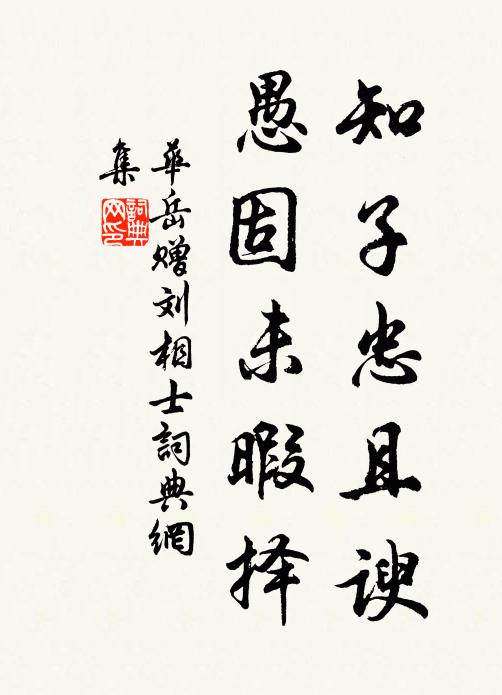 知子忠且谀
愚固未暇择
華岳赠刘相士詞典網
集
詞典
网印